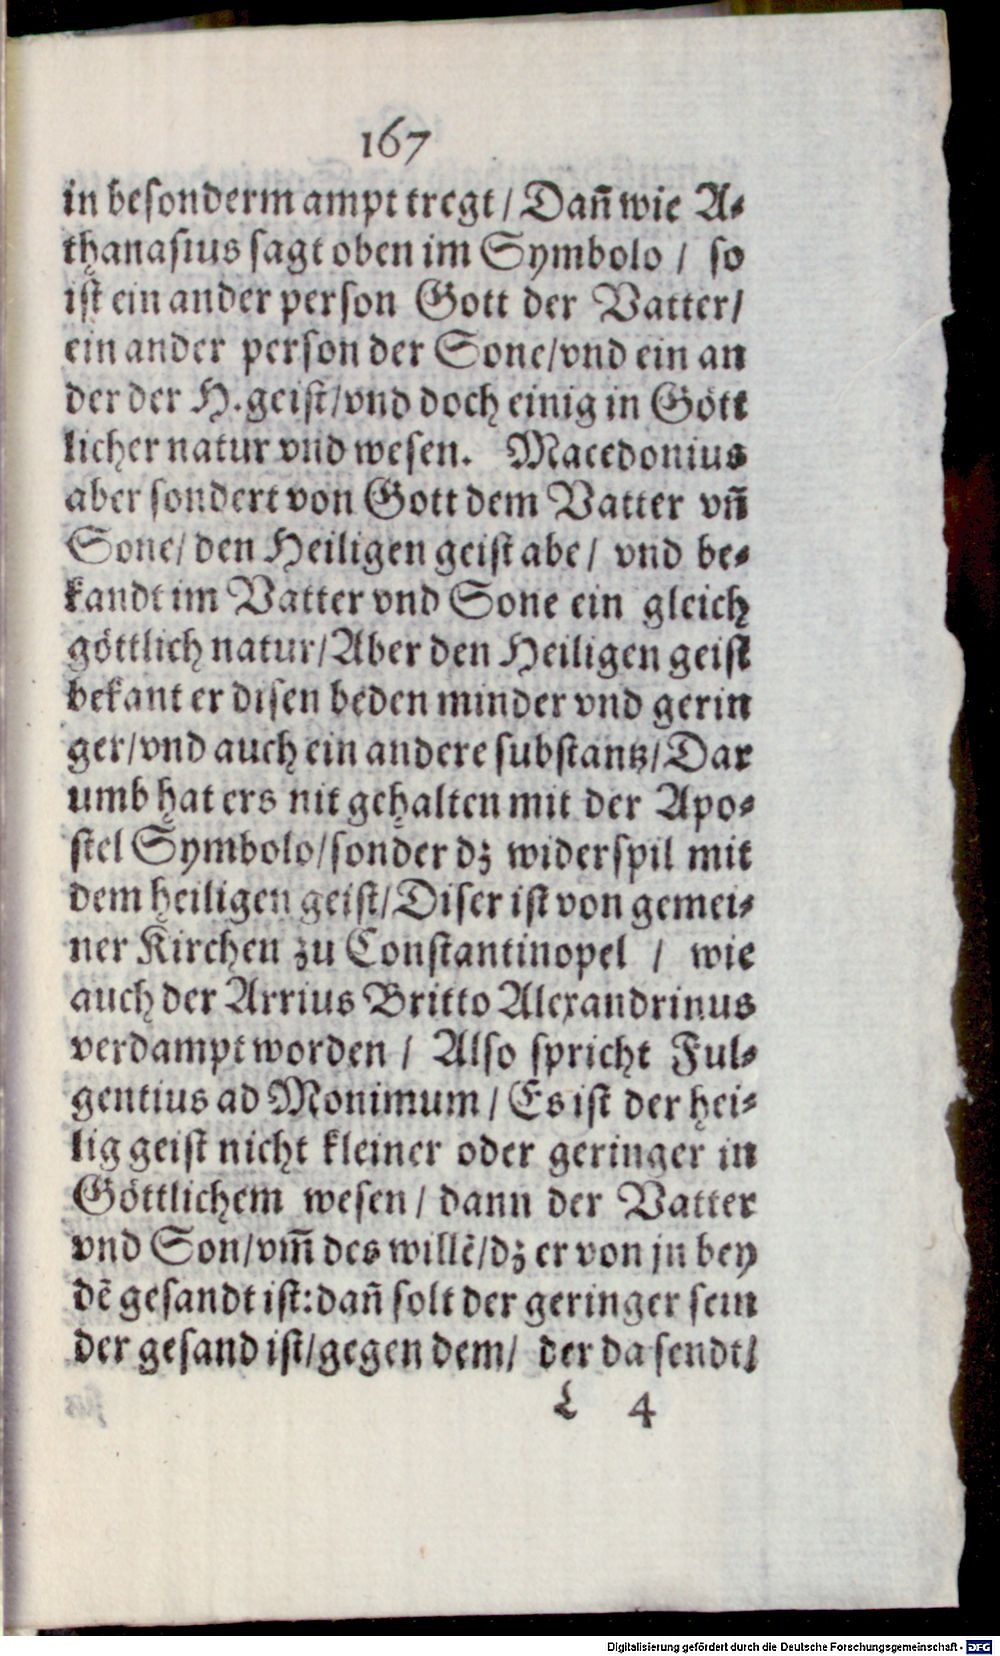 167
in besonderm ampt tregt / Dañ wie A⸗
thanasius sagt oben im Symbolo / so
ist ein ander person Gott der Vatter/
ein ander person der Sone/vnd ein an
der der H. geist/vnd doch einig in Gött
licher natur vnd wesen. Macedonius
aber sondert von Gott dem Vatter vñ
Sone/ den Heiligen geist abe / vnd be⸗
kandt im Vatter vnd Sone ein gleich
göttlich natur/Aber den Heiligen geist
bekant er disen beden minder vnd gerin
ger/vnd auch ein andere substantz/Dar
umb hat ers nit gehalten mit der Apo⸗
stel Symbolo/sonder dz widerspil mit
dem heiligen geist/Diser ist von gemei⸗
ner Kirchen zu Constantinopel / wie
auch der Arrius Britto Alexandrinus
verdampt worden / Also spricht Ful⸗
gentius ad Monimum / Es ist der hei⸗
lig geist nicht kleiner oder geringer in
Göttlichem wesen / dann der Vatter
vnd Son/vm̃ des willẽ/dz er von jn bey
dẽ gesandt ist:dañ solt der geringer sein
der gesand ist/gegen dem/ der da sendt/
L 4
Digitalisierung gefördert durch die Deutsche Forschungsgemeinschaft - DFG